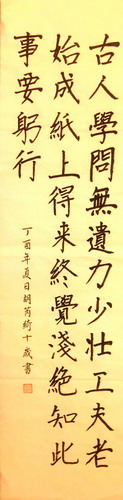 古人學問無遺力少壯工夫老
始成紙上得来終覺淺絕知此
事要躬行
丁酉年夏日胡芮綺十歲書